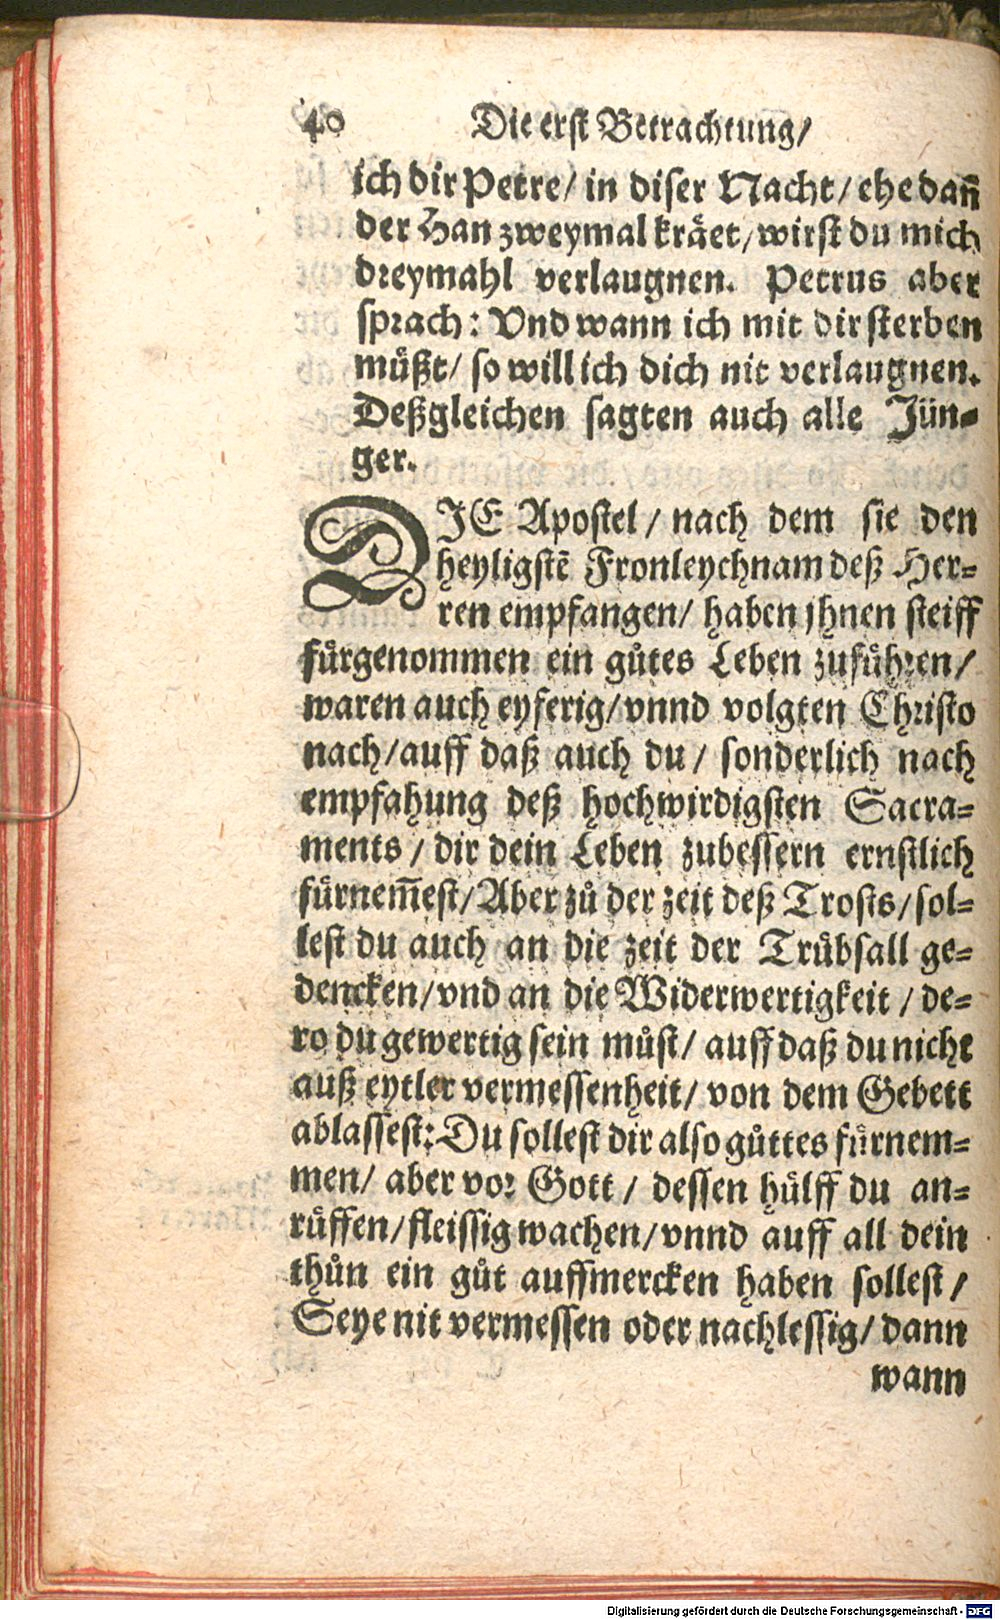 40 Die erst Betrachtung/
ich dir Petre/ in diser Nacht/ ehe dañ
der Han zweymal kräet/ wirst du mich
dreymahl verlaugnen. Petrus aber
sprach: Vnd wann ich mit dir sterben
müßt/ so will ich dich nit verlaugnen.
Deßgleichen sagten auch alle Jün-
ger.
DIE Apostel/ nach dem sie den
heyligstē Fronleychnam deß Her-
ren empfangen/ haben jhnen steiff
fürgenommen ein gůtes Leben zuführen/
waren auch eyferig/ vnnd volgten Christo
nach/ auff daß auch du/ sonderlich nach
empfahung deß hochwirdigsten Sacra-
ments/ dir dein Leben zubessern ernstlich
fürnem̅est/ Aber zů der zeit deß Trosts/ sol-
lest du auch an die zeit der Trübsall ge-
dencken/ vnd an die Widerwertigkeit/ de-
ro du gewertig sein můst/ auff daß du nicht
auß eytler vermessenheit/ von dem Gebett
ablassest: Du sollest dir also gůttes fürnem-
men/ aber vor Gott/ dessen hülff du an-
rüffen/ fleissig wachen/ vnnd auff all dein
thůn ein gůt auffmercken haben sollest/
Seye nit vermessen oder nachlessig/ dann
wann
Digitalisierung gefördert durch die Deutsche Forschungsgemeinschaft - DFG